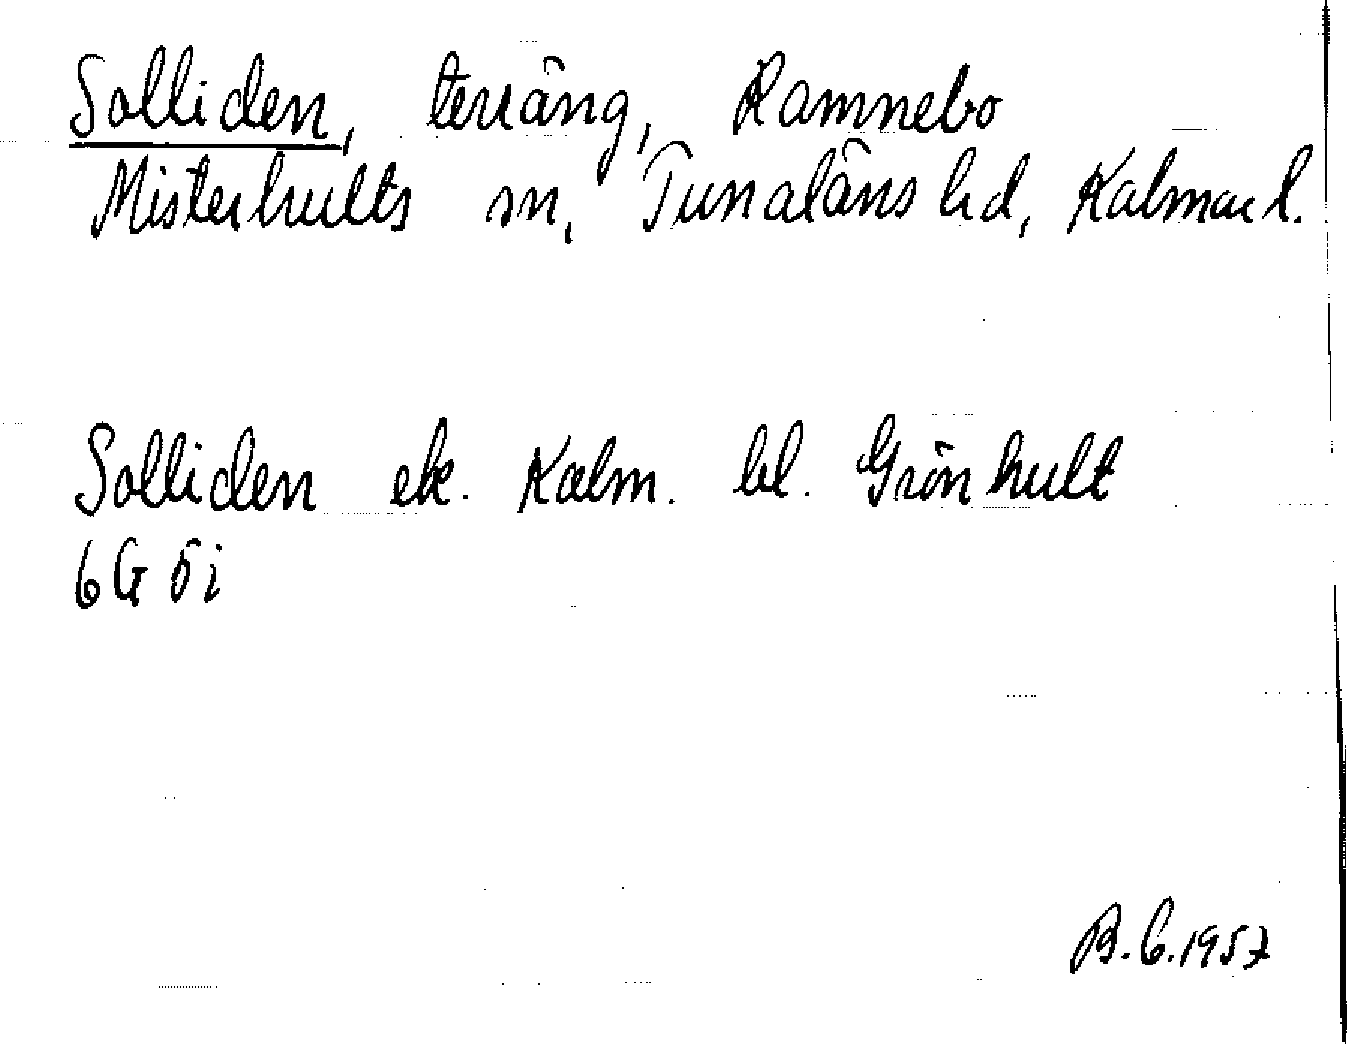 Solliden, terräng, Ramnebo
Misterhults sn, Tunaläns hd, Kalmar l.
Solliden ek. Kalm. bl. Grönhult
6G 5i
B.C.1957